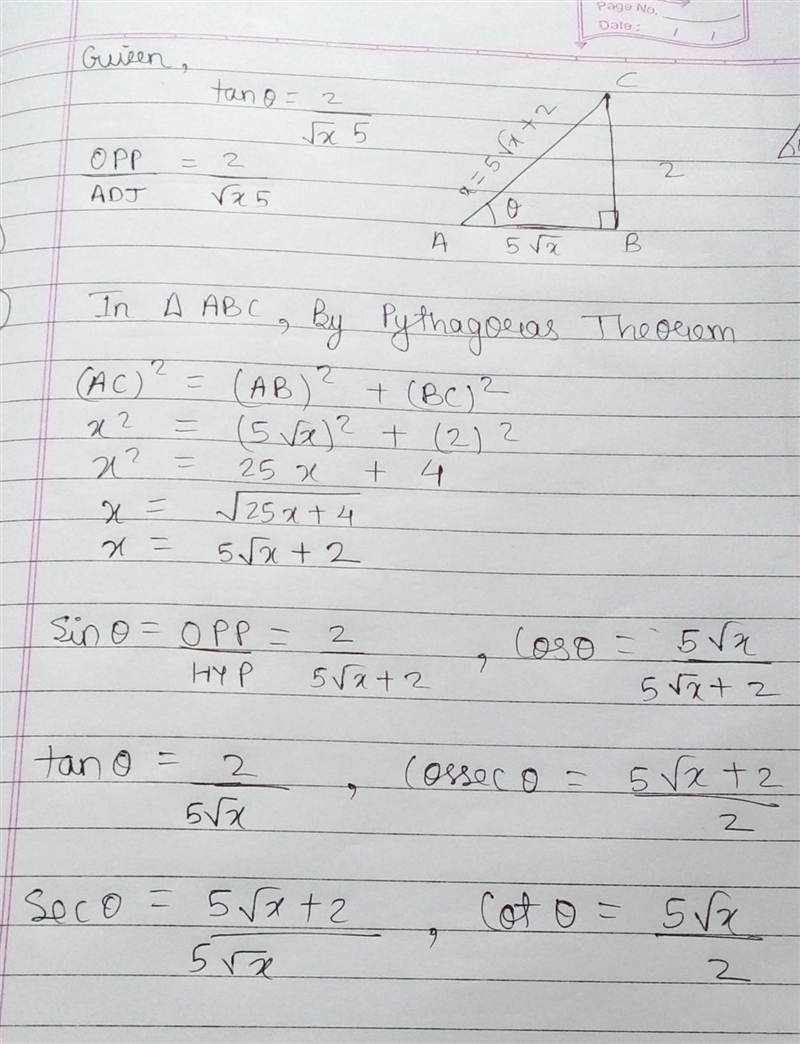 Page No.
Date: / /
Given,
tanθ = 2/√x 5
OPP/ADJ = 2/√x 5
C
x = 5√x + 2
2
θ
A
5√x
B
In Δ ABC, By Pythagoras Theorem
(AC)² = (AB)² + (BC)²
x² = (5√x)² + (2)²
x² = 25x + 4
x = √25x + 4
x = 5√x + 2
Sinθ = OPP/HYP = 2/5√x + 2, Cosθ = 5√x/5√x + 2
tanθ = 2/5√x, Cossecθ = 5√x + 2/2
Secθ = 5√x + 2/5√x, Cotθ = 5√x/2